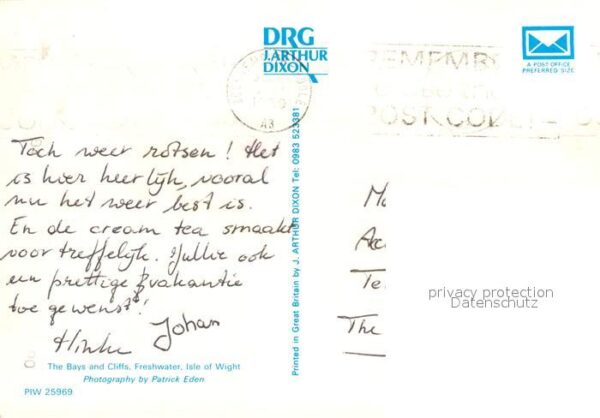 DRG
J. ARTHUR
DIXON
A POST OFFICE
PREFERRED SIZE
REMEMB
POST CODE
A3
Toch weer rotsen! Het
is hier heerlijk, vooral
nu het weer best is.
En de cream tea smaakt
voortreffelijk. Jullie ook
een prettige vakantie
toegewenst!
Johan
Hinke
Printed in Great Britain by J. ARTHUR DIXON Tel: 0983 523381
Ma
Acc
Te
The
privacy protection
Datenschutz
The Bays and Cliffs, Freshwater, Isle of Wight
Photography by Patrick Eden
PIW 25969